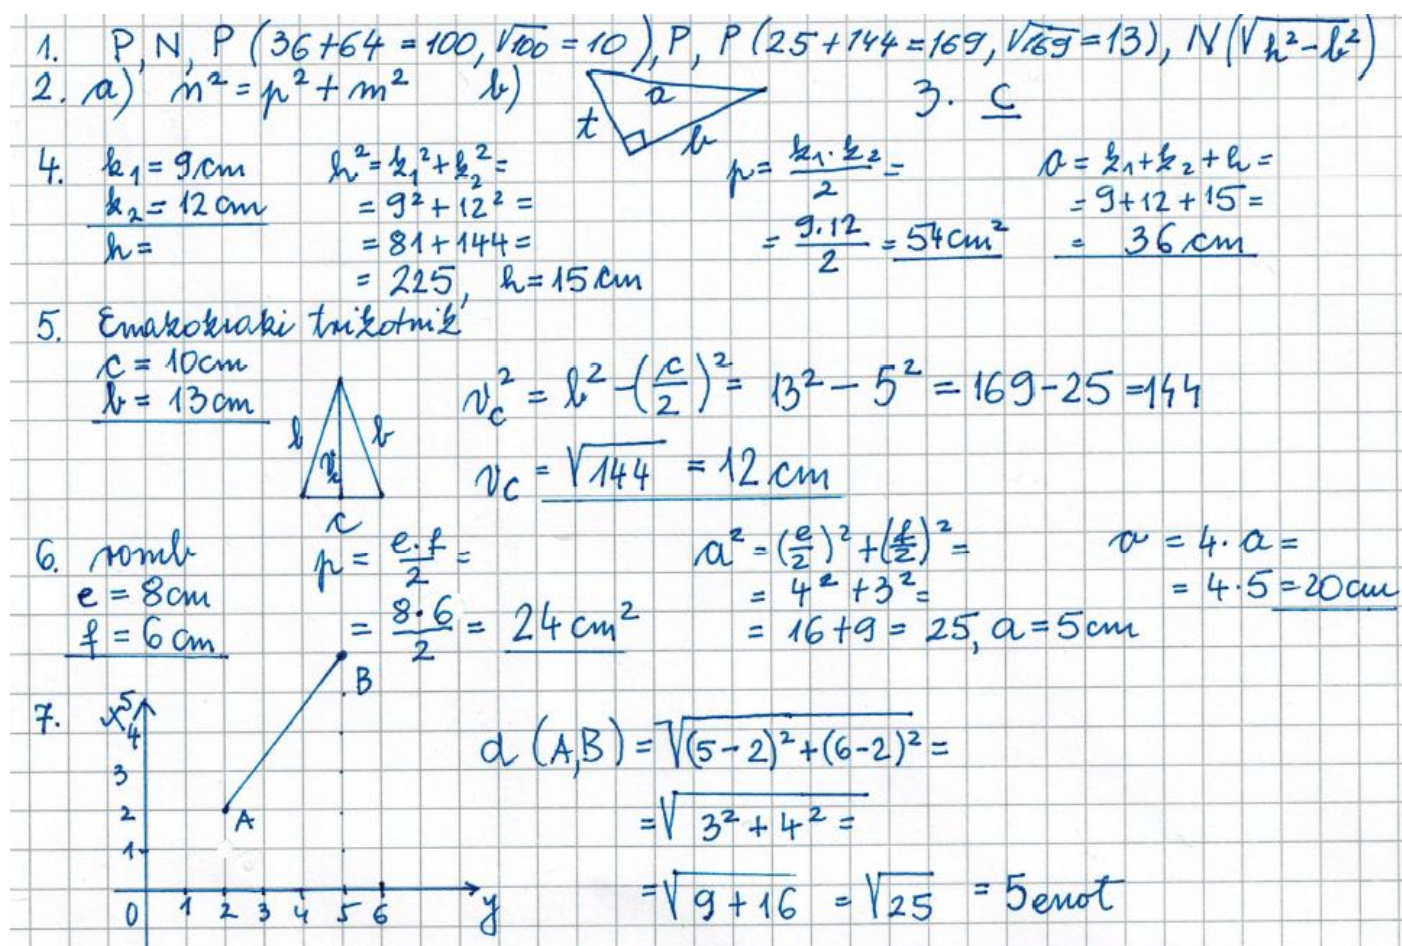 1. P, N, P (36+64=100, √100=10), P, P (25+144=169, √169=13), N(√h²-b²)
2. a) n² = p² + m² b)
a
t
b
3. C
4. k₁ = 9cm
k₂ = 12cm
h =
h² = k₁² + k₂² =
= 9² + 12² =
= 81 + 144 =
= 225, h = 15cm
p = k₁·k₂/2 =
= 9·12/2 = 54cm²
o = k₁ + k₂ + h =
= 9 + 12 + 15 =
= 36 cm
5. Enakokraki trikotnik
c = 10cm
b = 13cm
b
b
v_c
c
v_c² = b² - (c/2)² = 13² - 5² = 169 - 25 = 144
v_c = √144 = 12 cm
6. romb
e = 8cm
f = 6cm
p = e·f/2 =
= 8·6/2 = 24cm²
a² = (e/2)² + (f/2)² =
= 4² + 3² =
= 16 + 9 = 25, a = 5cm
o = 4·a =
= 4·5 = 20cm
7.
x
5
4
3
2
1
0 1 2 3 4 5 6
y
A
B
d (A,B) = √(5-2)² + (6-2)² =
= √3² + 4² =
= √9 + 16 = √25 = 5enot